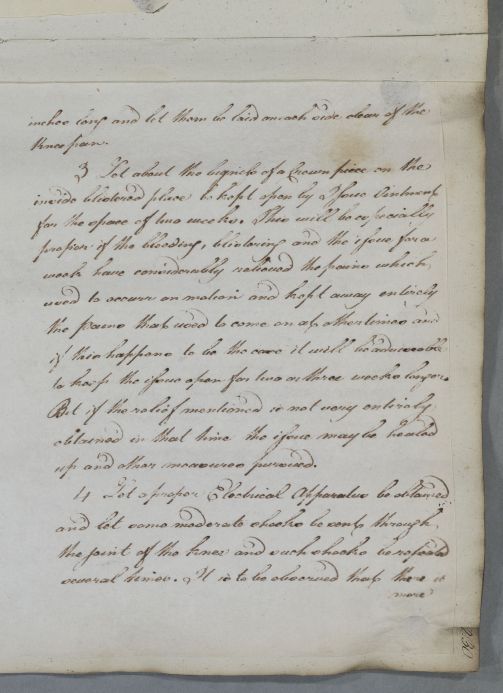 inches long and let them be laid on each side clear of the
Knee pan.
3 Let about the bigness of a Crown piece on the
inside blistered place be kept open by Issue Ointment
for the space of two weeks. This will be especially
proper if the bleeding, blistering and the issue for a
week have considerably relieved the pains which
used to occurr on motion and kept away entirely
the pains that used to come on at other times and
if this happens to be the case it will be adviseable
to keep the issue open for two or three weeks longer.
But if the relief mentioned is not very entirely
obtained in that time the issue may be healed
up and other measures pursued.
4 Let a proper Electrical Apparatus be obtained
and let some moderate shocks be sent through
the joint of the knee and such shocks be repeated
several times. It is to be observed that there is
more
230